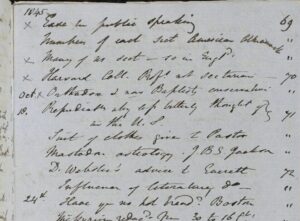 1845
x Ease in public speaking 69
Numbers of each sect American "
x Many of no sect - so in Engd. "
x Harvard Coll. Profs not sectarian - 70
Oct x Orthodox & new Baptist conservatism "
18. Repudiation why so bitterly thought of 71
in the U.S.
Suit of clothes give to Pastor "
Mastodon osteology of B.S. Jackson "
D. Webster's advice to Everett 72
Influence of literature &c - "
24th Have you no hd. bread? Boston "
30 to